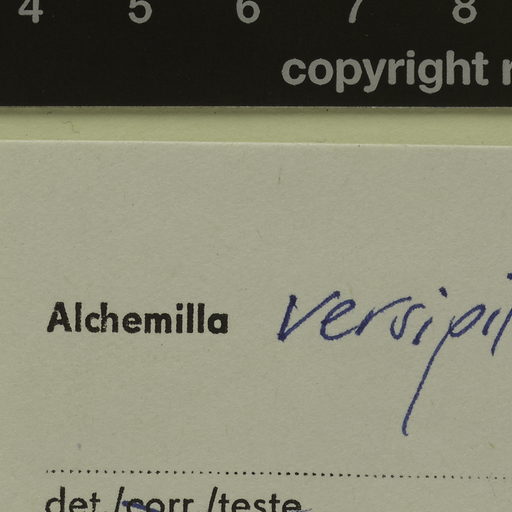 4 5 6 7 8
copyright r
Alchemilla versipil
det./corr./teste